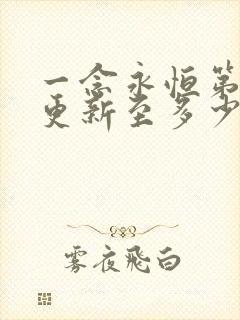 一念永恒第
更新至多少
雾夜飞白